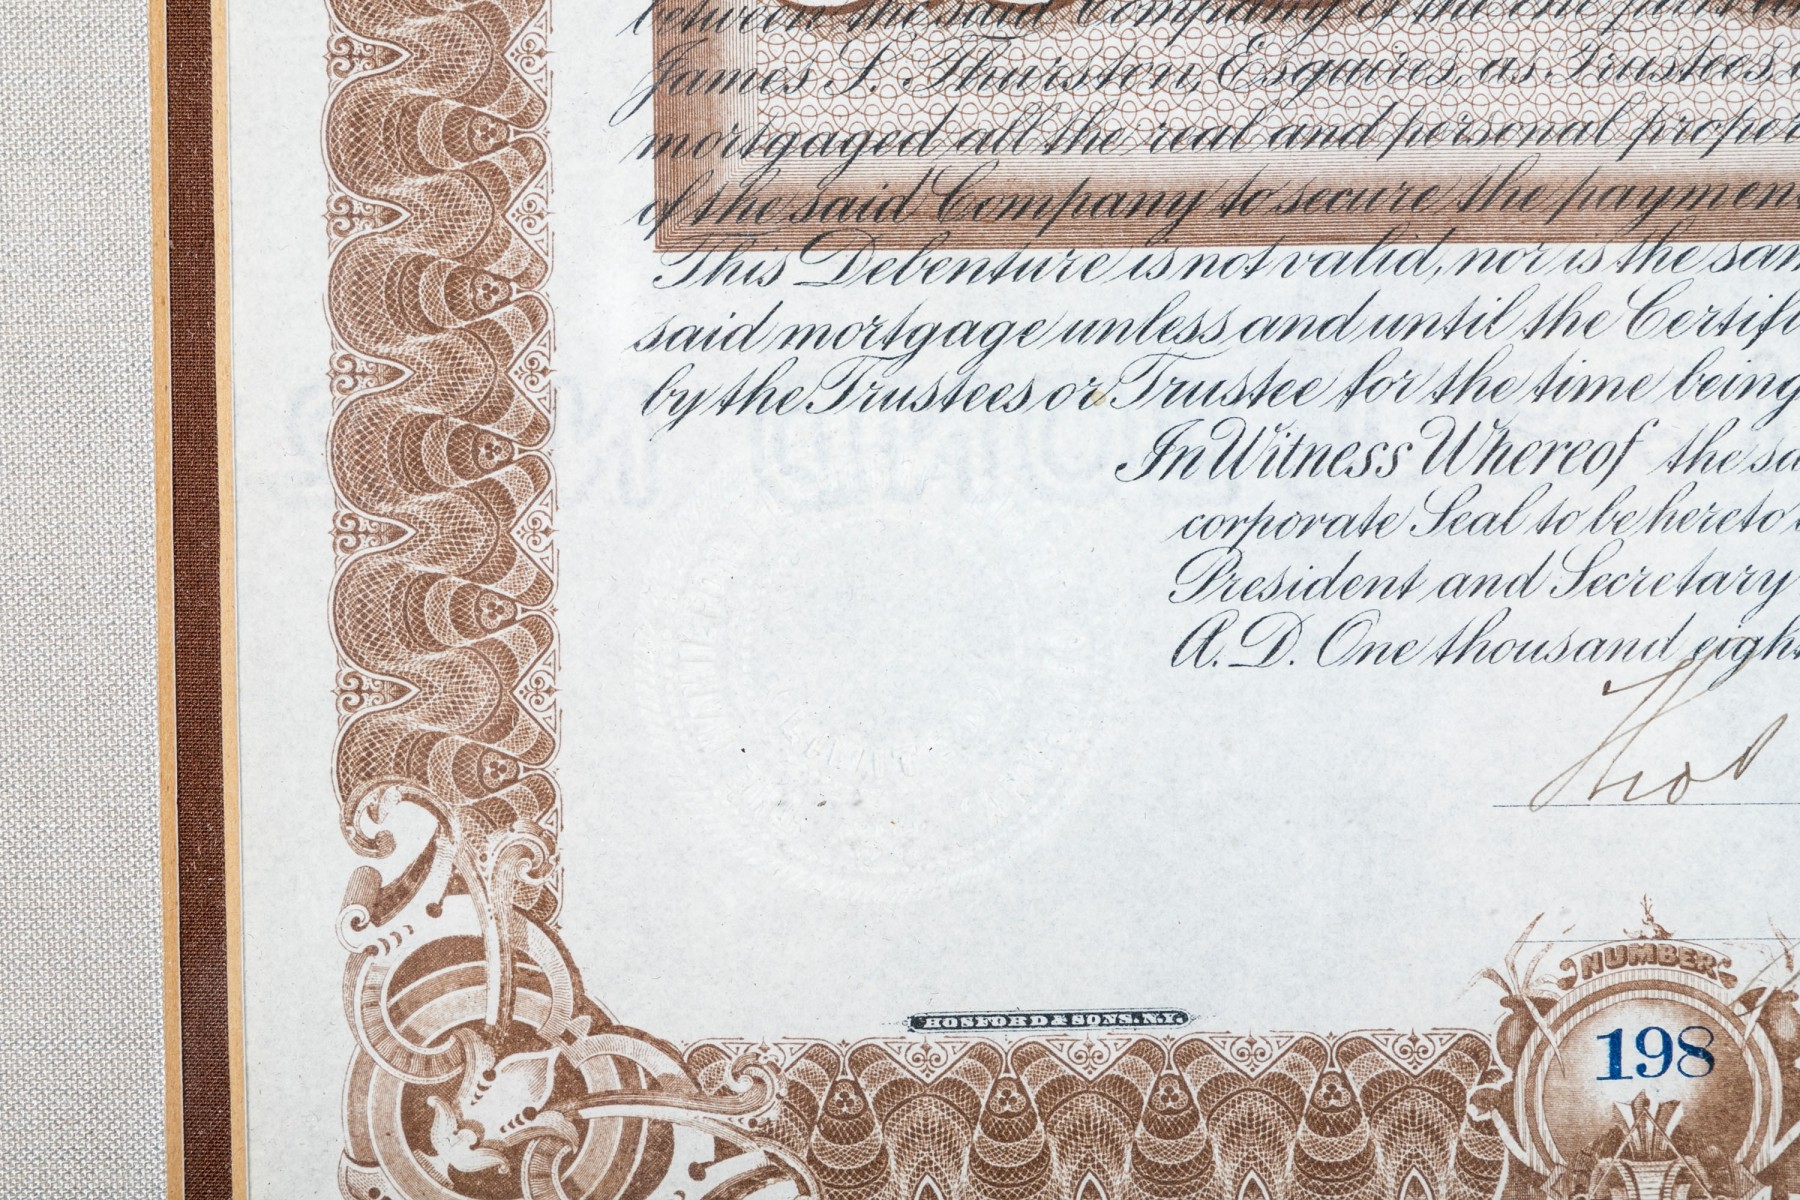 between the said Company of the one part
James S. Thurston, Esquires, as Trustees
mortgaged all the real and personal proper
of the said Company to secure the paymen
This Debenture is not valid, nor is the sam
said mortgage unless and until the Certifi
by the Trustees or Trustee for the time being
In Witness Whereof the sa
corporate Seal to be hereto
President and Secretary
A.D. One thousand eigh
HOSFORD & SONS. N.Y.
NUMBER
198